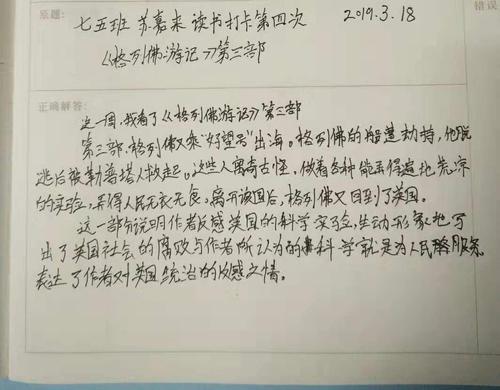 原题:
错误
七五班 苏嘉来 读书打卡第四次 2019.3.18
《格列佛游记》第三部
正确解答:
这一周,我看了《格列佛游记》第三部
第三部,格列佛又乘"好望号"出海。格列佛的船遭劫持,他脱
逃后被勒普塔人救起。这些人寓奇古怪,做着各种能弄得遍地荒凉
的实验,弄得人民无衣无食。离开该国后,格列佛又回到了英国。
这一部分说明作者反感英国的科学实验,生动形象地写
出了英国社会的腐败与作者所认为的科学就是为人民服务,
表达了作者对英国统治的反感之情。